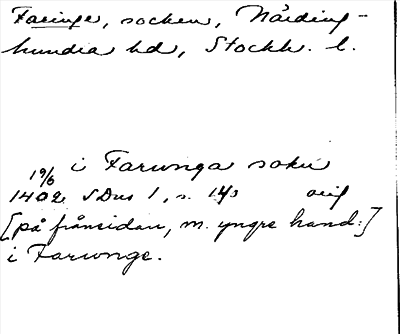 Faringe, socken, Närding-
hundra hd, Stockh. l.
i Farunga sokn
19/6
1402 SDns 1, s. 143 orig
[på frånsidan, m. yngre hand:]
i Farunge.